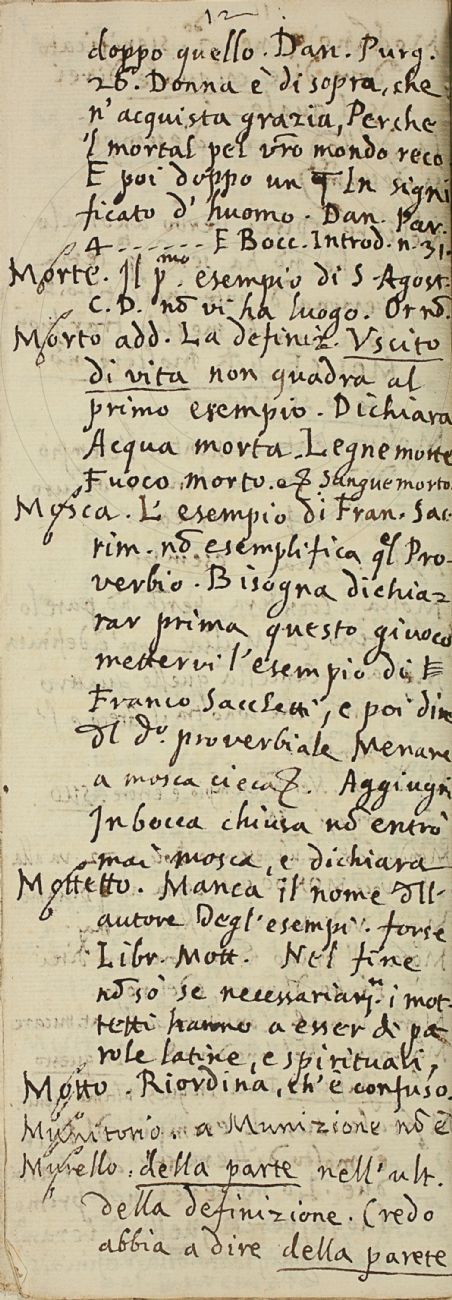 12
doppo quello. Dan. Purg.
26. Donna è di sopra, che
n'acquista grazia, Perche
'l mortal pel vr̃o mondo reco.
E poi doppo un ¶ In signi
ficato d'huomo. Dan. Par.
4 - - - - - - E Bocc. Introd. n. 31.
Morte. Il p.mo esempio di S Agost.
C. D. nõ vi ha luogo. Or nõ.
Morto add. La definiz. Vscito
di vita non quadra al
primo esempio. Dichiara
Acqua morta. Legne morte
Fuoco morto. e Sangue morto.
Mosca. L'esempio di Fran. Sac-
rim. nõ esemplifica ql Pro-
verbio. Bisogna dichia-
rar prima questo giuoco
mettervi l'esempio di
Franco Sacchetti, e poi dire
dl do. proverbiale Menare
a mosca cieca. Aggiugni
In bocca chiusa nõ entrò
mai mosca, e dichiara
Mottetto. Manca il nome dll'
autore degl'esempi. forse
Libr. Mott. Nel fine
nõ sò se necessariam.te i mot-
tetti hanno a esser di pa
role latine, e spirituali,
Motto. Riordina, ch'è confuso.
Munitorio. a Munizione nõ è
Murello. della parte nell'ult.
della definizione. Credo
abbia a dire della parete